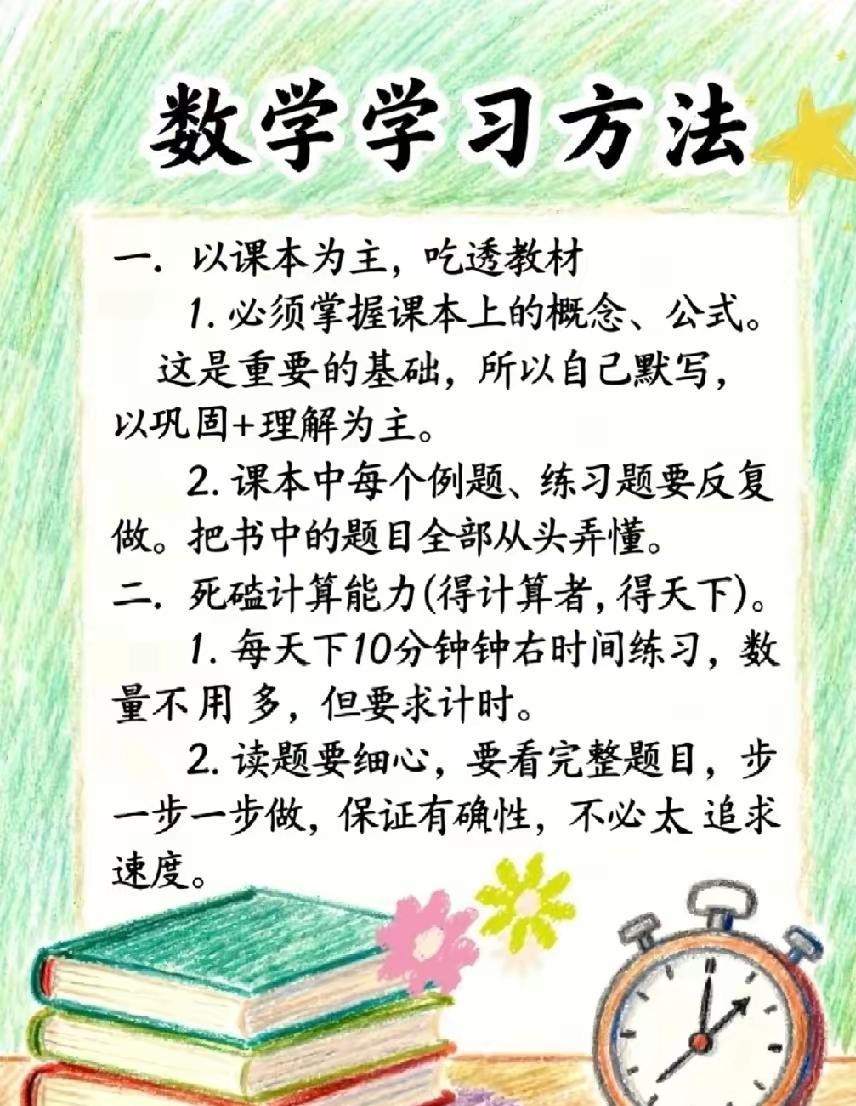 数学学习方法
一. 以课本为主，吃透教材
1. 必须掌握课本上的概念、公式。
这是重要的基础，所以自己默写，
以巩固+理解为主。
2. 课本中每个例题、练习题要反复
做。把书中的题目全部从头弄懂。
二. 死磕计算能力(得计算者, 得天下)。
1. 每天下10分钟钟右时间练习，数
量不用多，但要求计时。
2. 读题要细心，要看完整题目，步
一步一步做，保证有确性，不必太追求
速度。